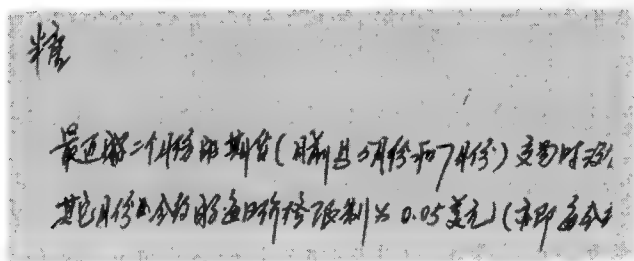 糖
最近的二个月份的期货(目前是5月份和7月份)交易时没
其它月份的合约的每日价格限制为0.05美元(亦即每个